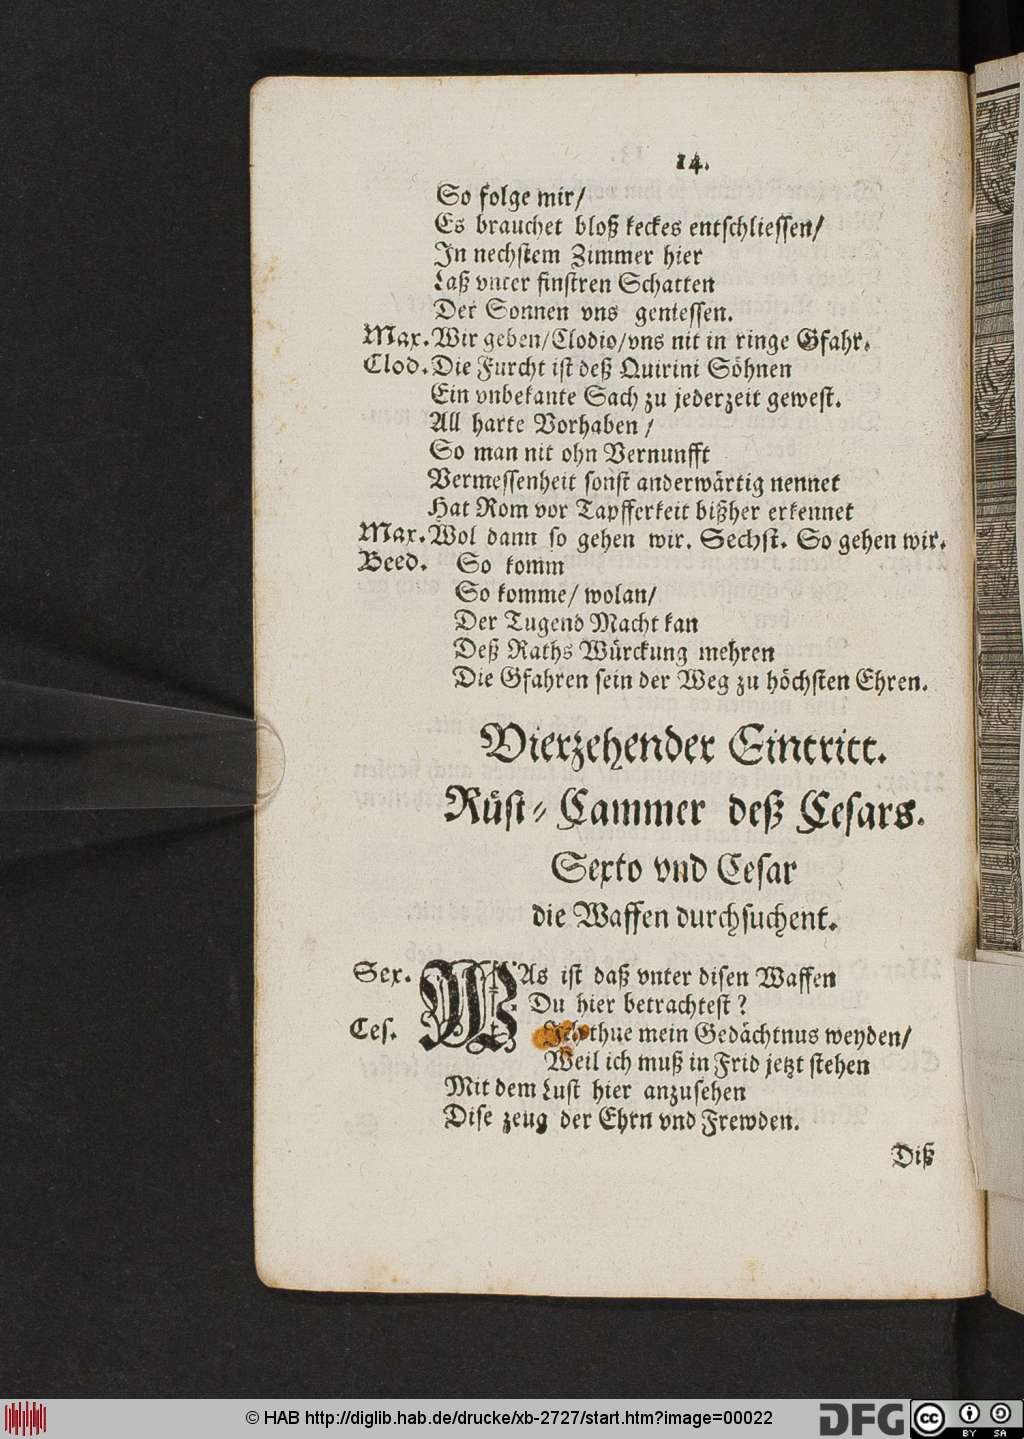 14.
So folge mir/
Es brauchet bloß keckes entschliessen/
In nechstem Zimmer hier
Laß vnter finstren Schatten
Der Sonnen vns geniessen.
Max. Wir geben/Clodio/vns nit in ringe Gfahr.
Clod. Die Furcht ist deß Quirini Söhnen
Ein vnbekante Sach zu jederzeit gewest.
All harte Vorhaben /
So man nit ohn Vernunfft
Vermessenheit sonst anderwärtig nennet
Hat Rom vor Tapfferkeit bißher erkennet
Max. Wol dann so gehen wir. Sechst. So gehen wir.
Beed. So komm
So komme/ wolan/
Der Tugend Macht kan
Deß Raths Würckung mehren
Die Gfahren sein der Weg zu höchsten Ehren.
Vierzehender Eintritt.
Rüst-Cammer deß Cesars.
Sexto vnd Cesar
die Waffen durchsuchent.
Sex. WAs ist daß vnter disen Waffen
Du hier betrachtest?
Ces. Ich thue mein Gedächtnus weyden/
Weil ich muß in Frid jetzt stehen
Mit dem Lust hier anzusehen
Dise zeug der Ehrn vnd Frewden.
Diß
© HAB http://diglib.hab.de/drucke/xb-2727/start.htm?image=00022
DFG
cc BY SA